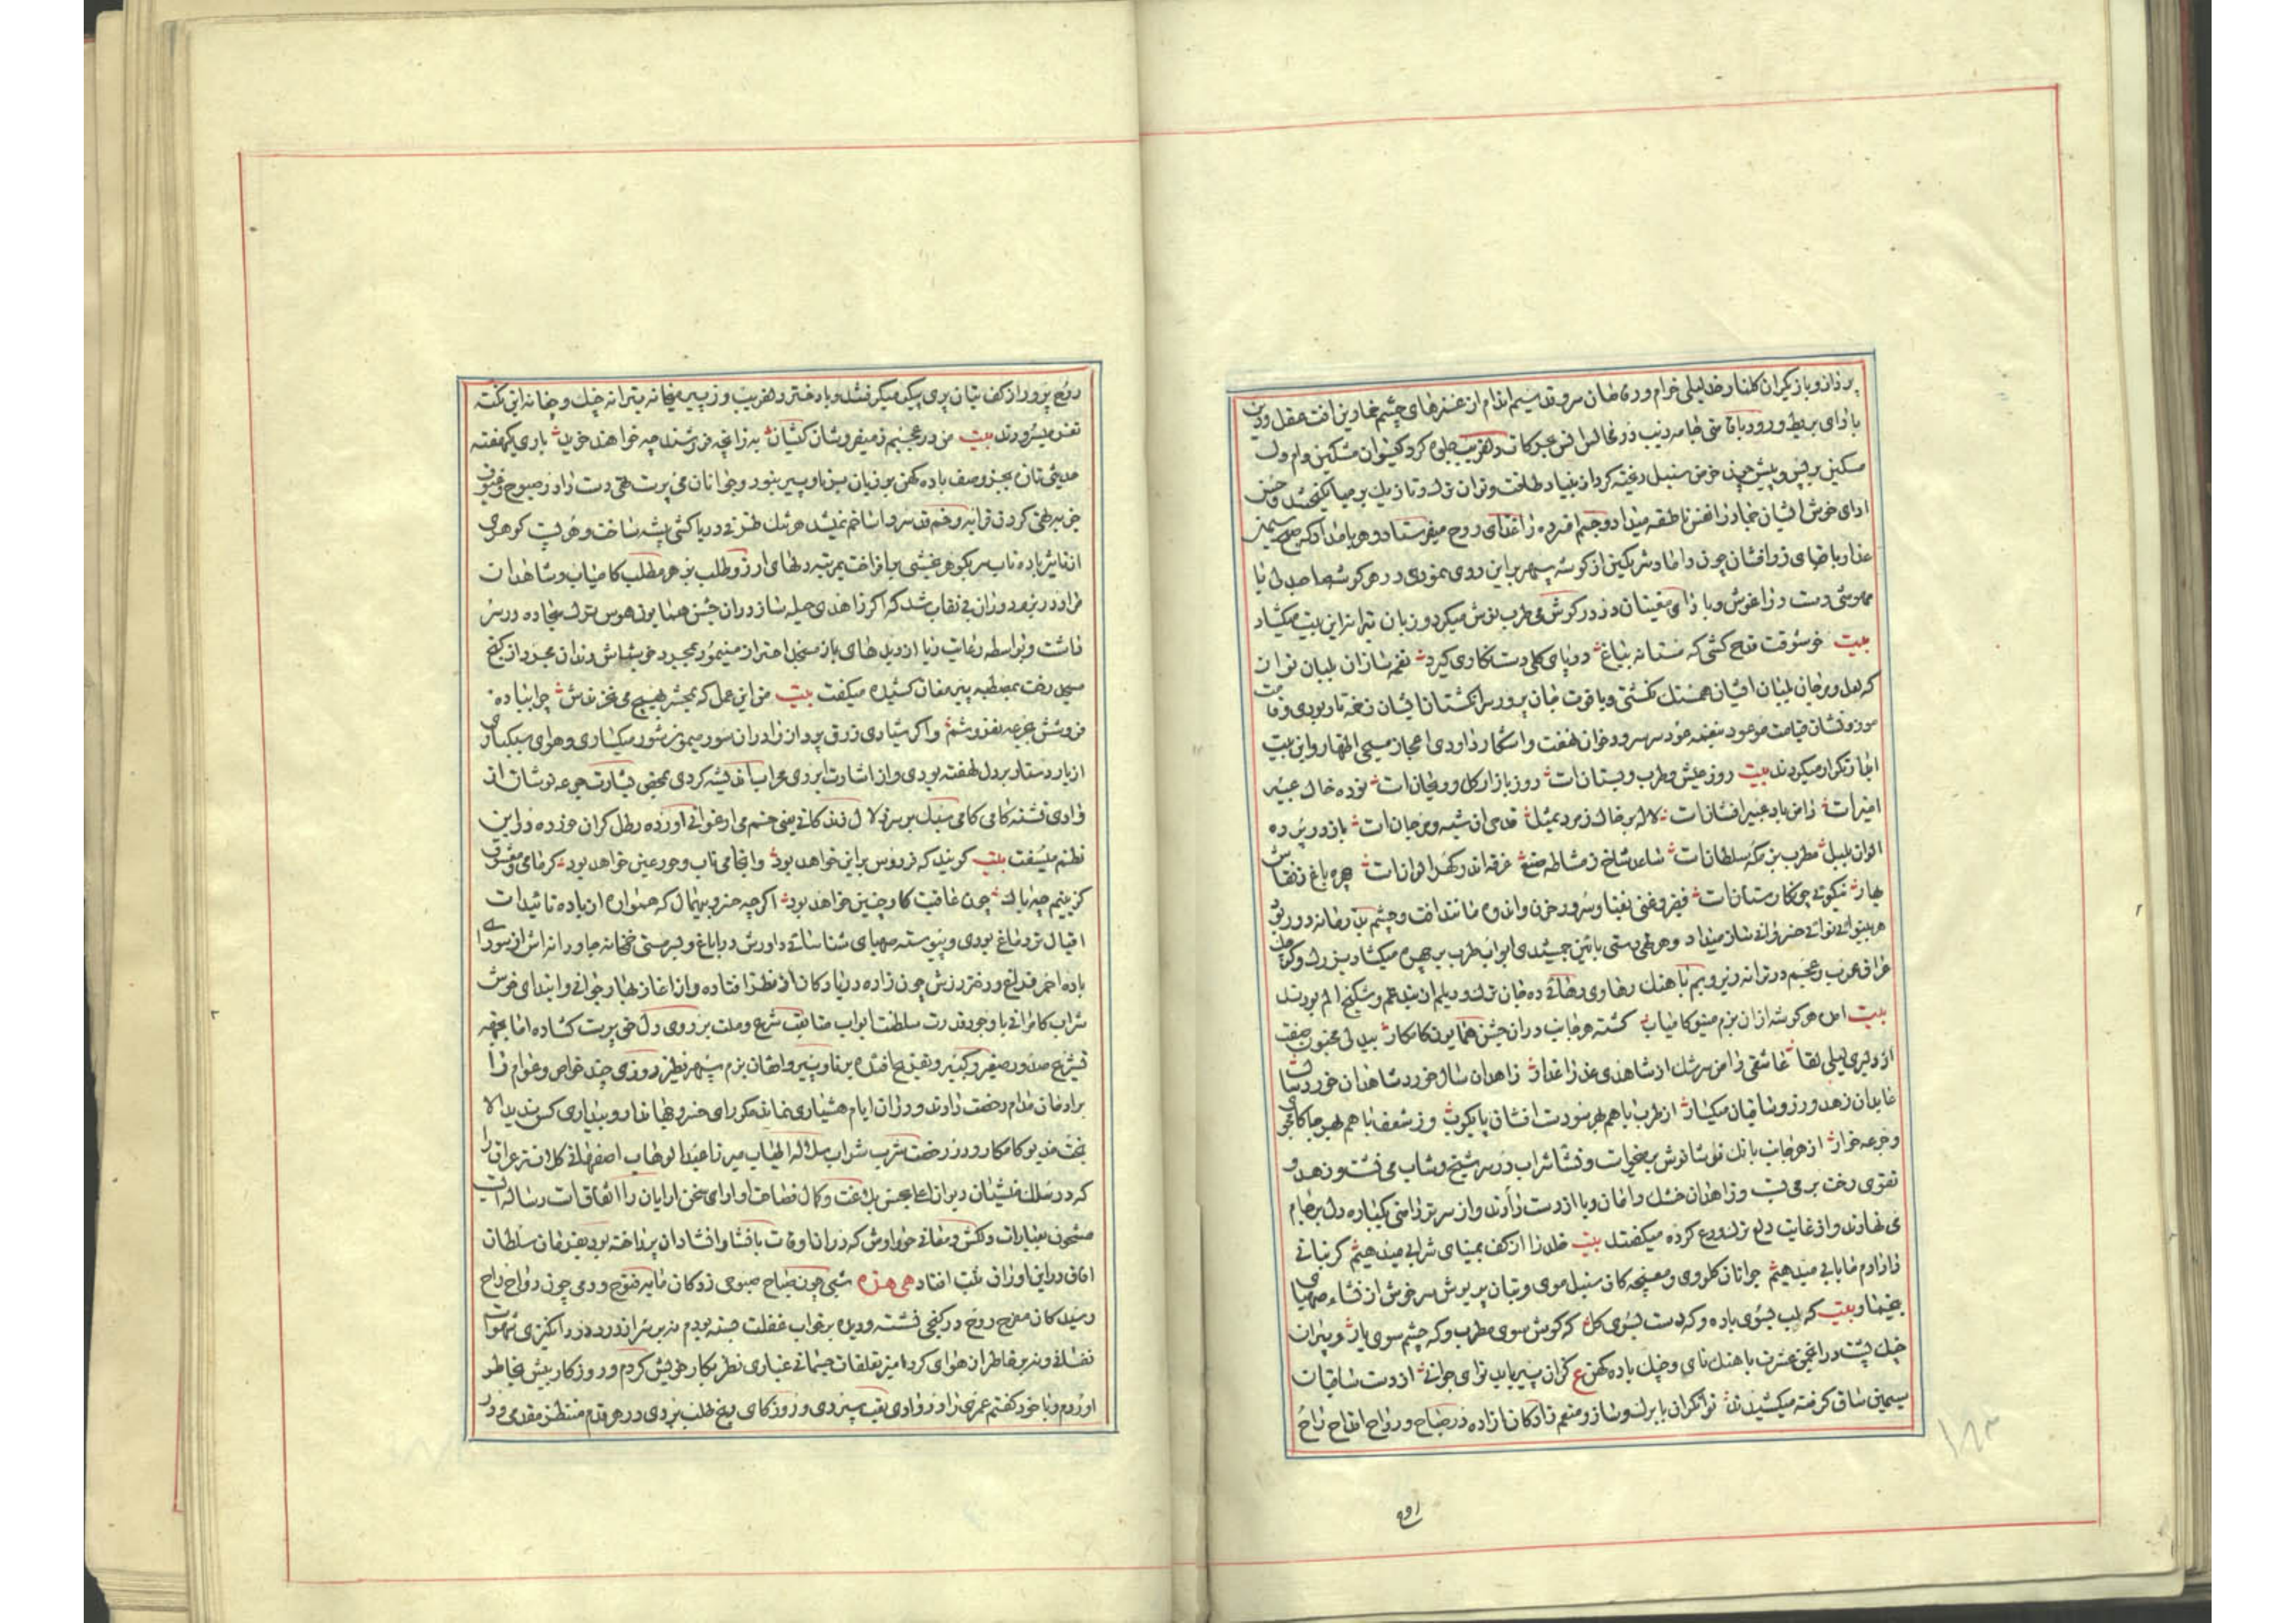 پرداز و بازیگران گلنار خد لیلی خرام و رقاصان سرو قد سیم اندام از غمزهای چشم غماز دین افت عقل و دین
با وای بربط و رود با قامتی جامه زیب در محافل از فن حرکات دلفریب جلوه کرد گیسوان مشکین دام دل
مسکین بر پس و پیش چون خرمن سنبل ریخته کرد از بنیاد طاقت و توان ترک و تازیک بر میانگیختند و حسن
ادای خوش ایشان جماد را نفس ناطقه میداد و جسم افسرده را غذای روح میفرستاد و هر بامداد که صبح سیمین
عذار با ضیای زر افشان چون داماد شرمگین از گوشه سپهر برین روی نمودی در هر گوشه صاحبدلی با
مهوشی دست در اغوش و با وای مغنیان درد در گوش می طرب نوش میکرد و زبان ترانه این بیت میگشاد
بیت خوشوقت قدح کشی که مستانه بباغ در پای گلی دست نگاری گیرد نغمه سازان بلبان نوا ن
که لعل و مرجان بلبان ایشان همسنگ نگشتی و یاقوت جان پرور سر انگشتان ایشان زخمه تار بودی و قامت
موزونشان قیامت موعود بنغمه عود سر سرود خوان نهفت و اشکار داودی اعجاز مسیحی اظهار و این بیت
انجا تکرار میکردند بیت روز عیش و طرب و بستان است روز بازار گل و ریحان است توده خاک عبیر
امیز است دامن باد عبیر افشان است لاله بر خاک زمرد بمثل قدحی از شبه و مرجان است باز در پرده
الوان بلبل مطرب بزمگه سلطان است شاعد شاخ ز مشاطه صنع غرقه اندر گهر الوان است چهره باغ ز نقاش
بهار نیکوئی چو نگارستان است فقیر و غنی بغنا و سرور حزن و اندوه مانند افت و چشم بد زمانه دور بود
هر بینوائی نوائی خسروانی ساز میداد و هر تهی دستی بائین جمشیدی ابواب طرب بر چهره میگشاد بزرگ و کوچک
عراق عرب و عجم در ترانه زیر و بم با هنگ رهاوی رهائی ده جان ترک و دیلم از بند غم و شکنج الم بودند
بیت اهل هر گوشه از ان بزم مینو کامیاب گشته هر جانب دران جشن همایون کامکار بیدلی مجنون صفت
از دلبری لیلی لقا عاشقی وامق سرشک از شاهدی عذرا عذار زاهدان سال خورد شاهدان خورد سال
عابدان زهد ورز و ساقیان میگسار از طرب با هم بهر سو دست افشان پایکوب وز شعف با هم بهر جا کامجوی
و جرعه خوار از هر جانب بانک نوشانوش برخاست و نشاء شراب در سر شیخ و شاب می نشست و زهد و
تقوی رخت بر می بست و زاهدان خشک دامان ریا از دست دادند و از سر تردامنی یکباره دل بر جام
می نهادند و از غایت دلع ترک ورع کرده میگفتند بیت خاک را از کف بمینای شرابی میدهیم گر نباتی
زاد ادم ما بابی میدهیم جوانان گلروی و مغبچه کان سنبل موی و بتان پریوش سرخوش از نشاء صهبای
یغما و بیت که لب بسوی باده و که دست بسوی گل که گوش سوی مطرب و که چشم سوی یار و پیران
چنک پشت در انجمن عشرت با هنک نای و چنک باده کهن ع کزان پیر یابد نوای جوانی از دست ساقیان
سیمین ساق گرفته میکشیدند توانگران با برگ و ساز و منعم زادگان ازاده در صباح و رواح اقداح راح
روح
روح پرور از کف بتان پری پیکر میگرفتند و با دختر دلفریب وز پیر میخانه بترانه چنک و چغانه این نکته
نغز میسرودند بیت من در عجبم ز میفروشان کیشان به زانچه فروشند چه خواهند خرید باری یکهفته
مدیحی شان بجز وصف باده کهن بر زبان برنا و پیر نبود و جوانان می پرست حتی دست داد ز صبوح و غبوق
جز به تهی کردن قرابه و خم قد سرو اسا خم نمیشد هر تنک ظرفی دریا کشی پیشه ساخت و هر پست گوهری
از تاثیر باده ناب سر بگوهر بخشی برافراخت بمرتبه دلهای ارزو طلب بر هر مطلب کامیاب و شاهدان
مراد در بزم دوران بی نقاب شد که اگر زاهدی حیله ساز دران جشن همایون هوس ترک سجاده در سر
داشت و بواسطه رعایت ریا از دیدهای باز مبخل احتراز مینمود بمجرد خرشاش رندان مجرد از کنج
مسجد رخت بمصطبه پیر مغان کشیده میگفت بیت من این عمل که بحشر بهیچ می نخرندش چرا بباده
فروشش بجرعه نفروشم و اگر شیادی زرق پرداز را دران سور میمون شور میگساری و هوای سبکباری
از بار دستار بر دل نهفته بودی و از اشارت ابروی محراب اندیشه کردی بمحض بشارت جرعه نوشان از
وادی تشنه کامی گامی سبک بر سر زلال زندگانی یعنی خم می ارغوانی اورده رطل گران خورده در این
نظم میسفت بیت گویند که فردوس برین خواهد بود وانجا می ناب و حور عین خواهد بود گر ما می و معشوق
گزینیم چه باک چون عاقبت کار چنین خواهد بود اگر چه خسرو بیهمال که همواره از باده تائیدات
اقبال تر دماغ بودی و پیوسته صهبای شناسائی داورش در ایاغ و سرمستی خمخانه جاودانه اش از سودای
باده احمر فراغ و دختر رزش چون زاده دریا و کان از نظر افتاده و از اغاز بهار جوانی و ابتدای خوش
شراب کامرانی با وجود قدرت سلطنت ابواب متابعت شرع و ملت بر روی دل حق پرست گشاده اما بجهة
تشریح صدور صغیر و کبیر و تفریح افئده برنا و پیر و اهقان بزم سپهر نظیر روزی چند خواص و عوام را
بر ادمان مدام رخصت دادند و دران ایام هشیاری نماند مگر رای خسرو جهاندار و بیداری کس ندید الا
بخت خدیو کامکار و در رخصت شرب شراب سلالة الاطیاب میرزا عبدالوهاب اصفهانی کلانتر عراق را
که در سلک منشیان دیوان اعلی بحسن بلاغت و کمال فصاحت او ارای سخن ارایان را اتفاقات رساله ایست
مشحون بعبارات دلکش و معانی جواد وش که دران اوقات با نشاء و انشاد ان پرداخته بود بفرمان سلطان
افاق در این اوراق ثبت افتاد هی هذه شبی چون صباح صبوحی زدگان مایه فتوح و دمی چون رواح راح
رسیدگان مفرح روح در کنجی نشسته و دیده بر خواب غفلت جسته بودم نه بر سر از ورود درد انگیزی شهوات
نفسانی و نه بر خاطر از هوای گرد امیز تعلقات جسمانی غباری نظر بکار خویش کردم و روزگار پیش بخاطر
اوردم و با خود گفتم عمری زاد ز وادی تعب سپردی و روزگای رنج طلب بردی در هر قدم منتظر مقدمی و در
۱۸۳